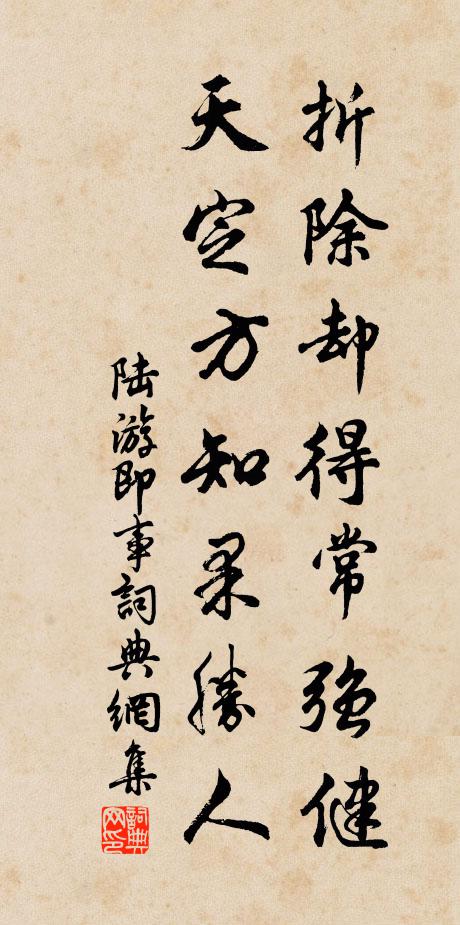 折除却得常強健
天定方知果勝人
陆游即事詞典網集
詞典网印